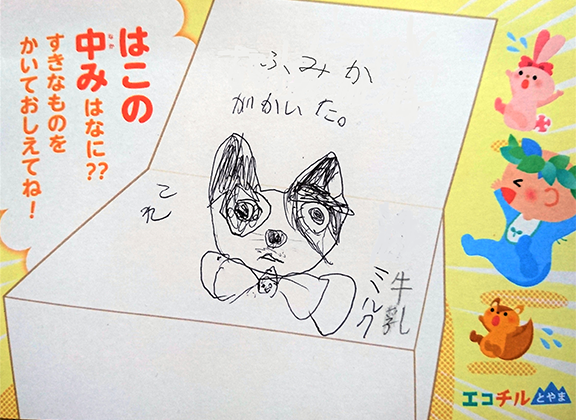 はこの
中みはなに??
なか
すきなものを
かいておしえてね!
ふみか
がかいた。
これ
牛乳
ミルク
エコチルとやま